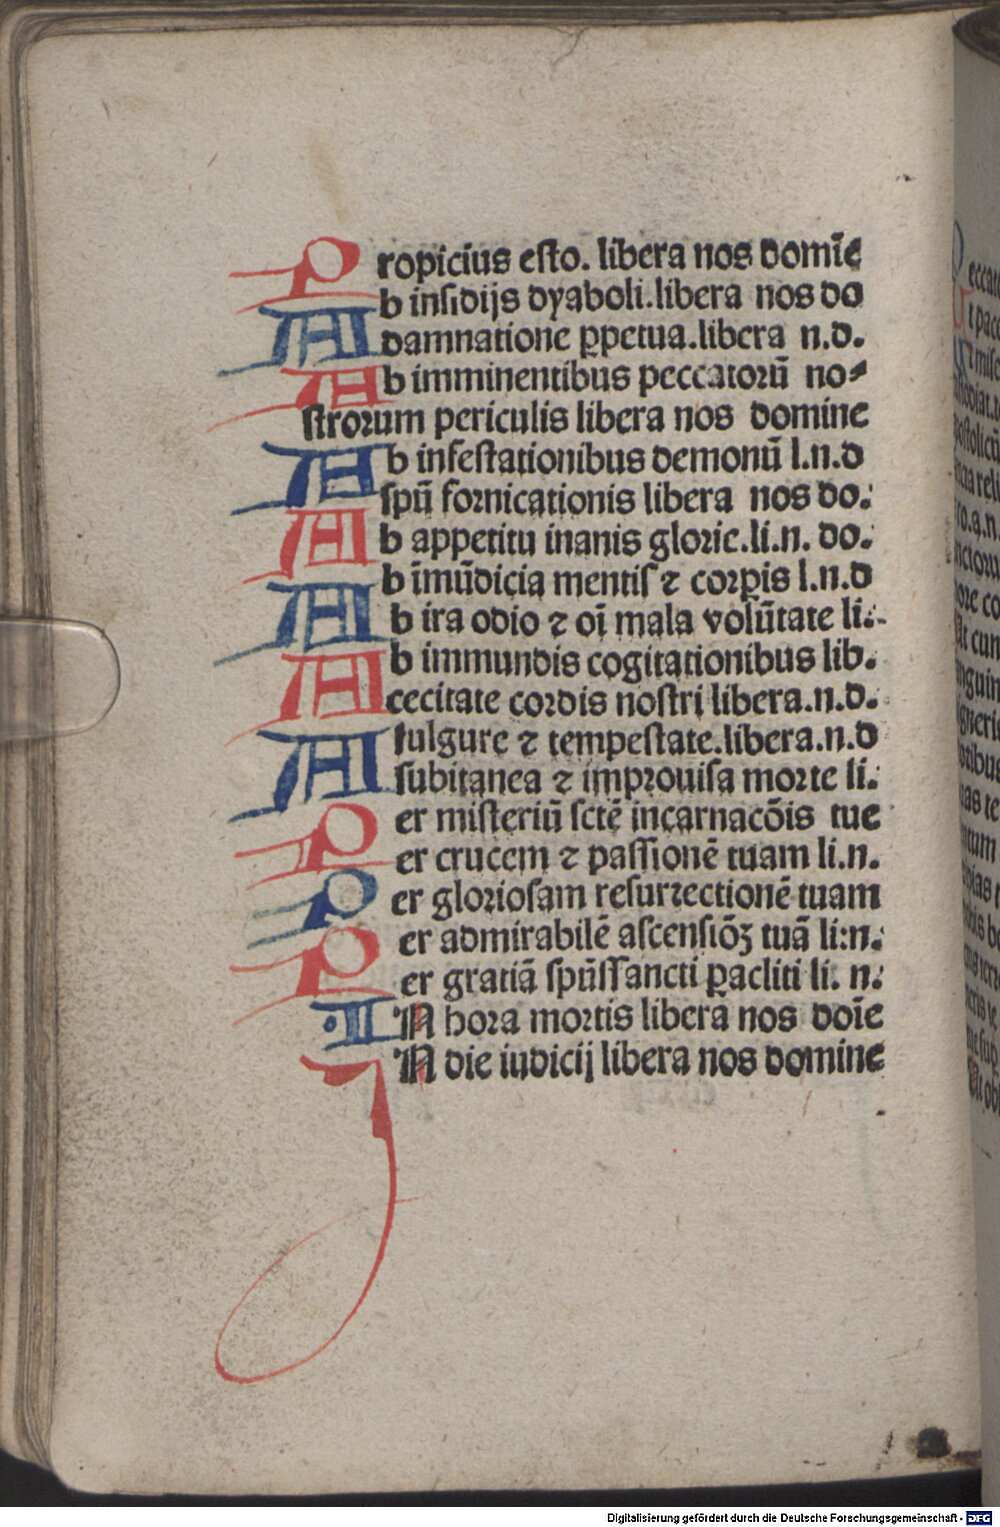 Propicius esto. libera nos domīe
Ab insidijs dyaboli.libera nos do
A damnatione ꝑpetua.libera n.d.
Ab imminentibus peccatorū no⸗
strorum periculis libera nos domine
Ab infestationibus demonū l.n.d
A spū fornicationis libera nos do.
Ab appetitu inanis glorie.li.n. do.
Ab īmūdicia mentis ⁊ corꝑis l.n.d
Ab ira odio ⁊ oī mala volūtate li.
Ab immundis cogitationibus lib.
A cecitate cordis nostri libera.n.d.
A fulgure ⁊ tempestate.libera.n.d
A subitanea ⁊ improuisa morte li.
Per misteriū sctē incarnacōis tue
Per crucem ⁊ passionē tuam li.n.
Per gloriosam resurrectionē tuam
Per admirabilē ascensiōꝫ tuā li:n.
Per gratiā spūssancti ꝑacliti li. n.
In hora mortis libera nos doīe
In die iudicij libera nos domine
eccato
t pac
t mise
stodiat.
postolicū
ro.a.n.
Digitalisierung gefördert durch die Deutsche Forschungsgemeinschaft - DFG